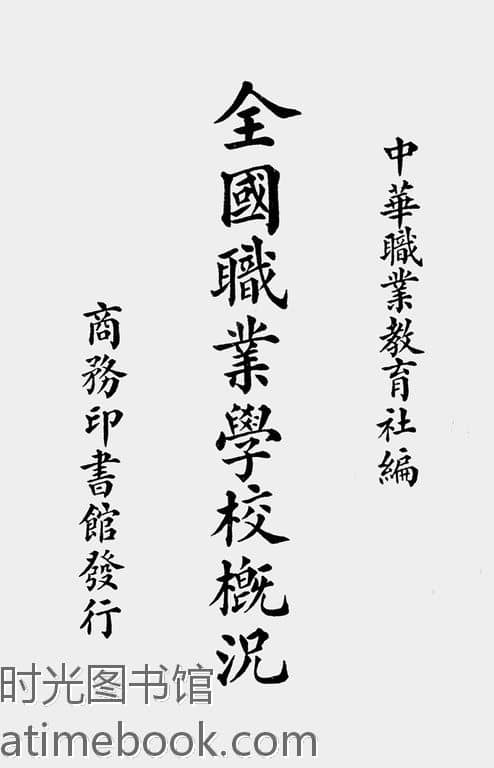 中華職業教育社編
全國職業學校概況
商務印書館發行
时光图书馆
atimebook.com